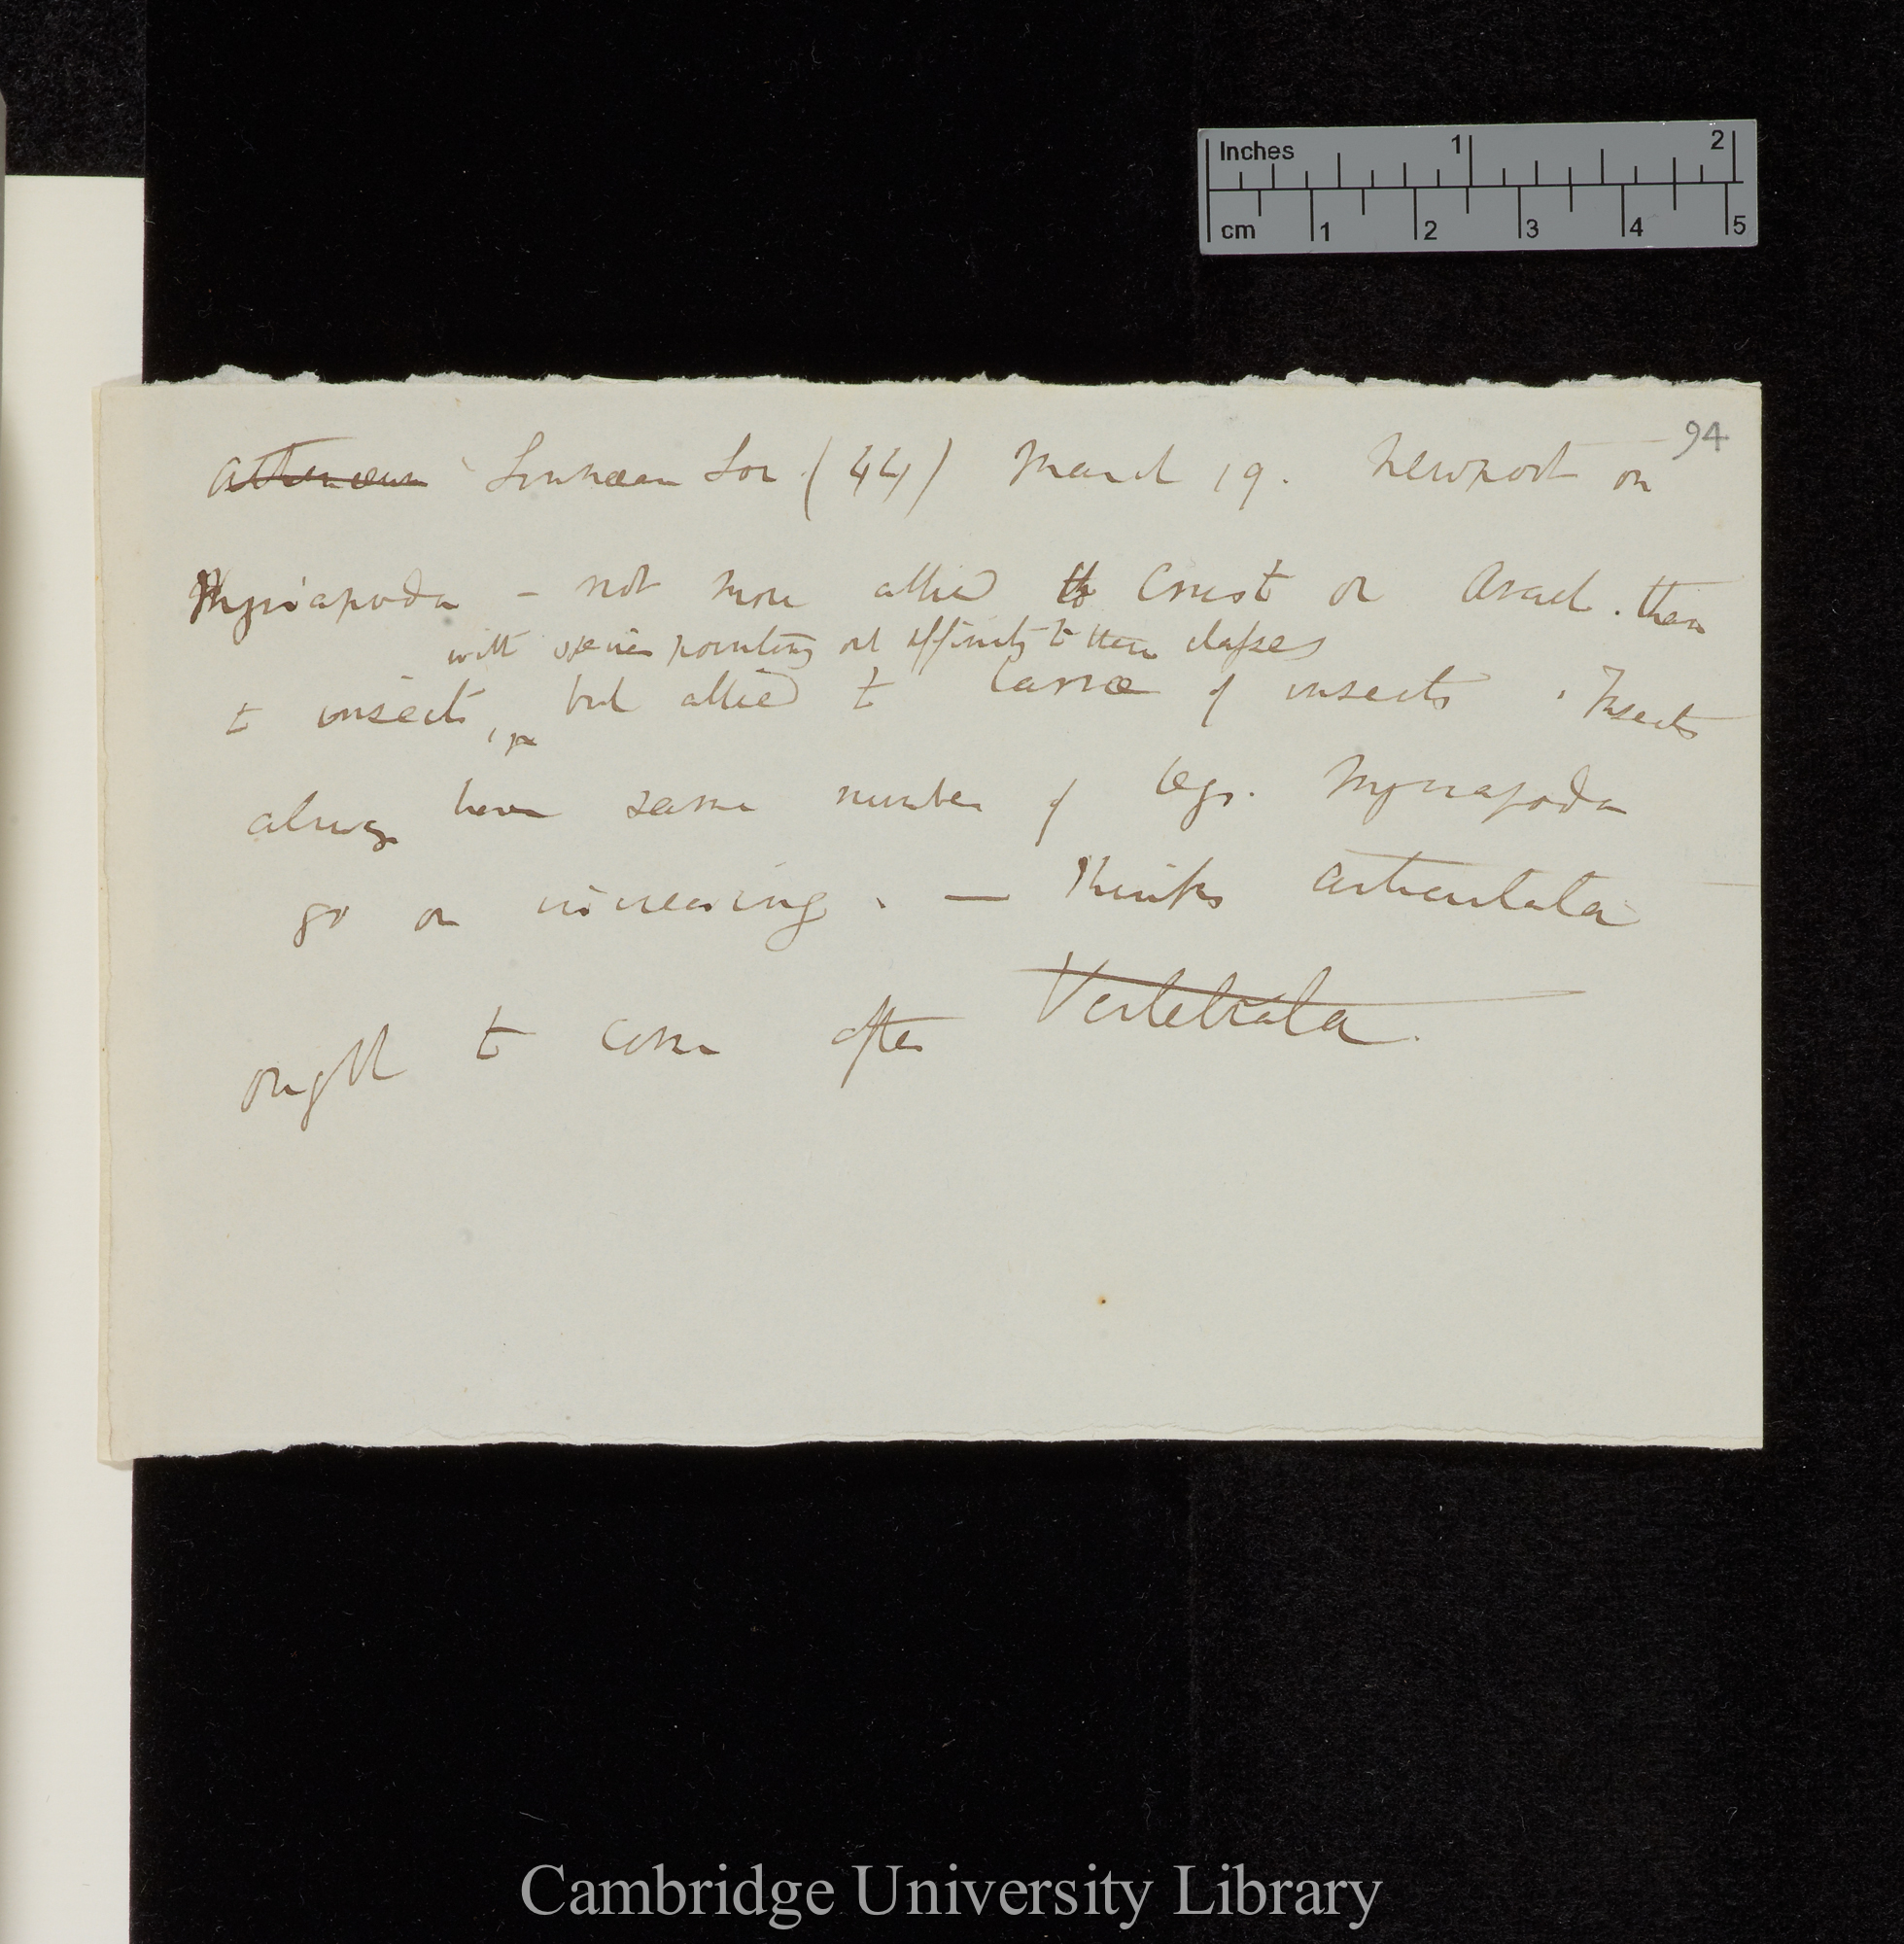 Inches 1 2
cm 1 2 3 4 5
94
Athenæum Linnæan Soc. (44) March 19. Newport on
Myriapoda – not more allied to Crust or Arach. than
with species pointing out affinity to these classes
to insects, but allied to larvæ of insects. Insects
always have same number of legs. Myriapoda
go on increasing. — Thinks Articulata
ought to come after Vertebrata.
Cambridge University Library